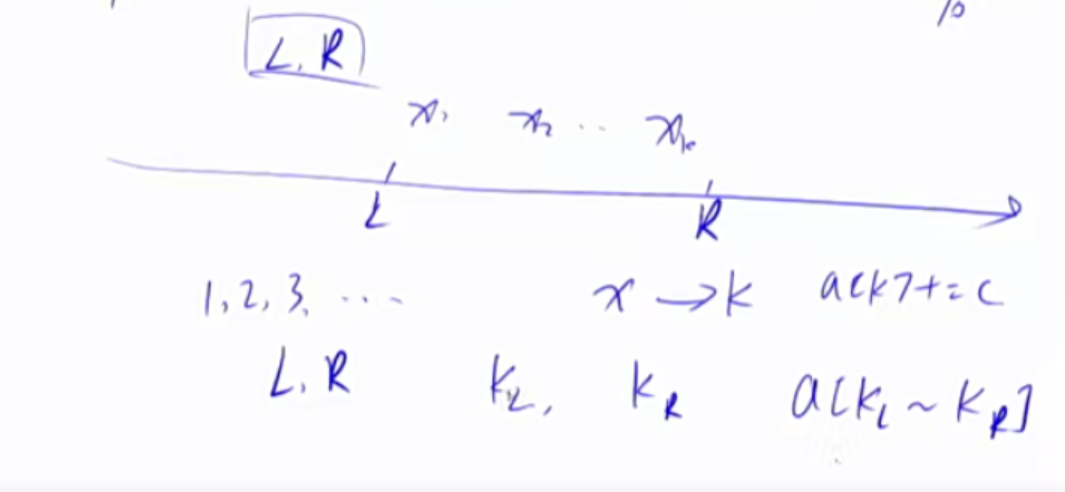 L, R
x₁ x₂ ... xₖ
L R
1, 2, 3, ... x → k a[k]+=c
L, R k_L, k_R a[k_L ~ k_R]